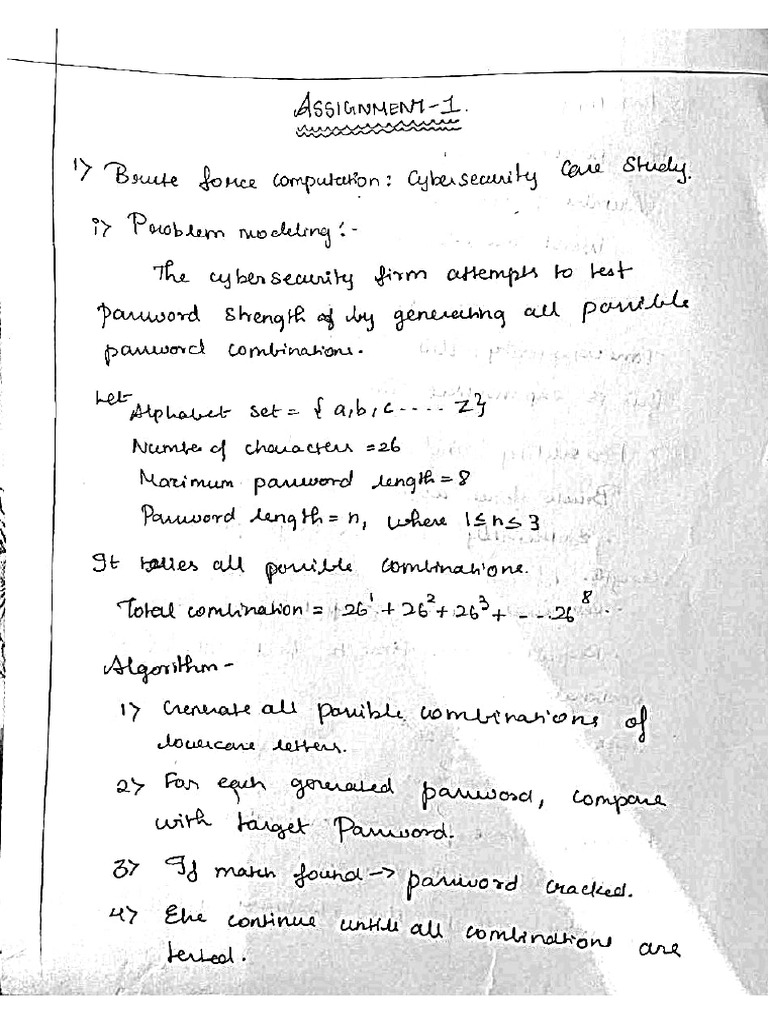 ASSIGNMENT-1.
1) Brute force computation: Cybersecurity Case Study.
i) Problem modeling:-
The cybersecurity firm attempts to test
password strength of by generating all possible
password combinations.
Let Alphabet set = { a, b, c .... z}
Number of characters = 26
Maximum password length = 8
Password length = n, where 1≤n≤3
It takes all possible combinations.
Total combination = 26¹ + 26² + 26³ + - ...26⁸
Algorithm -
1) Generate all possible combinations of
lowercase letters.
2) For each generated password, compare
with target Password.
3) If match found -> password cracked.
4) Else continue until all combinations are
tested.